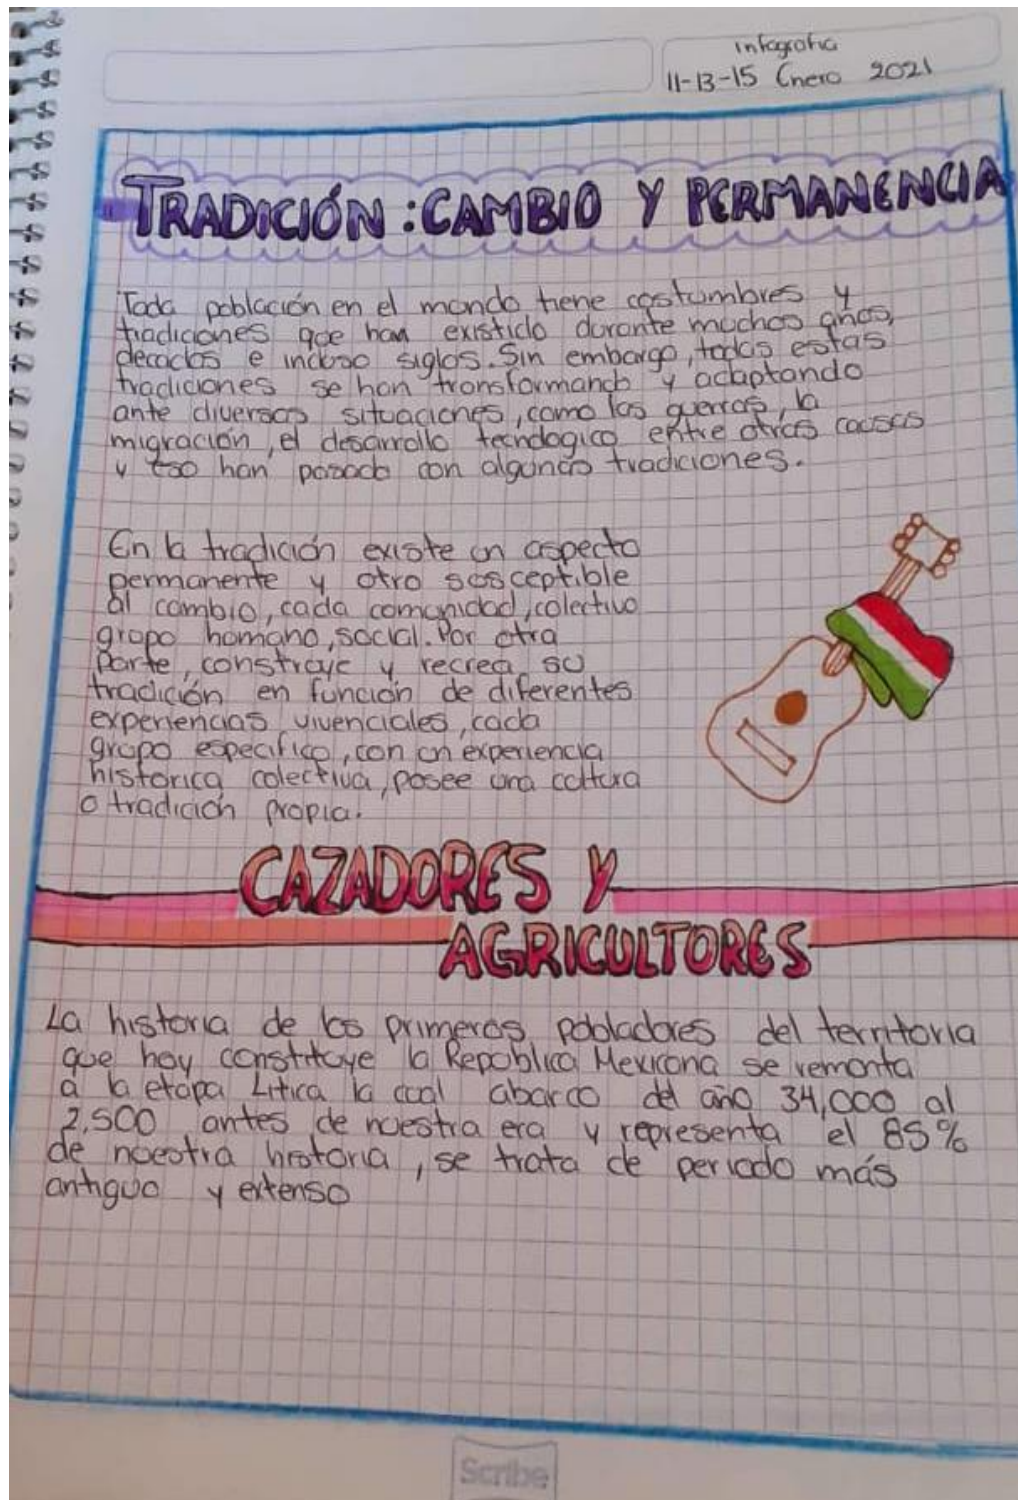 Infografia
11-13-15 Enero 2021
TRADICIÓN: CAMBIO Y PERMANENCIA
Toda población en el mundo tiene costumbres y
tradiciones que han existido durante muchos años,
decadas e incluso siglos. Sin embargo, todas estas
tradiciones se han transformando y adaptando
ante diversas situaciones, como las guerras, la
migración, el desarrollo tecnologico entre otras causas
y eso han pasado con algunas tradiciones.
En la tradición existe un aspecto
permanente y otro susceptible
al cambio, cada comunidad, colectivo
grupo humano, social. Por otra
Parte, construye y recrea su
tradición en función de diferentes
experiencias vivenciales, cada
grupo especifico, con un experiencia
historica colectiva, posee una cultura
o tradición propia.
CAZADORES Y
AGRICULTORES
La historia de los primeros pobladores del territoria
que hoy constituye la Republica Mexicana se remonta
a la etapa Litica la cual abarco del año 34,000 al
2,500 antes de nuestra era y representa el 85%
de nuestra historia, se trata de periodo más
antiguo y extenso
Scribe